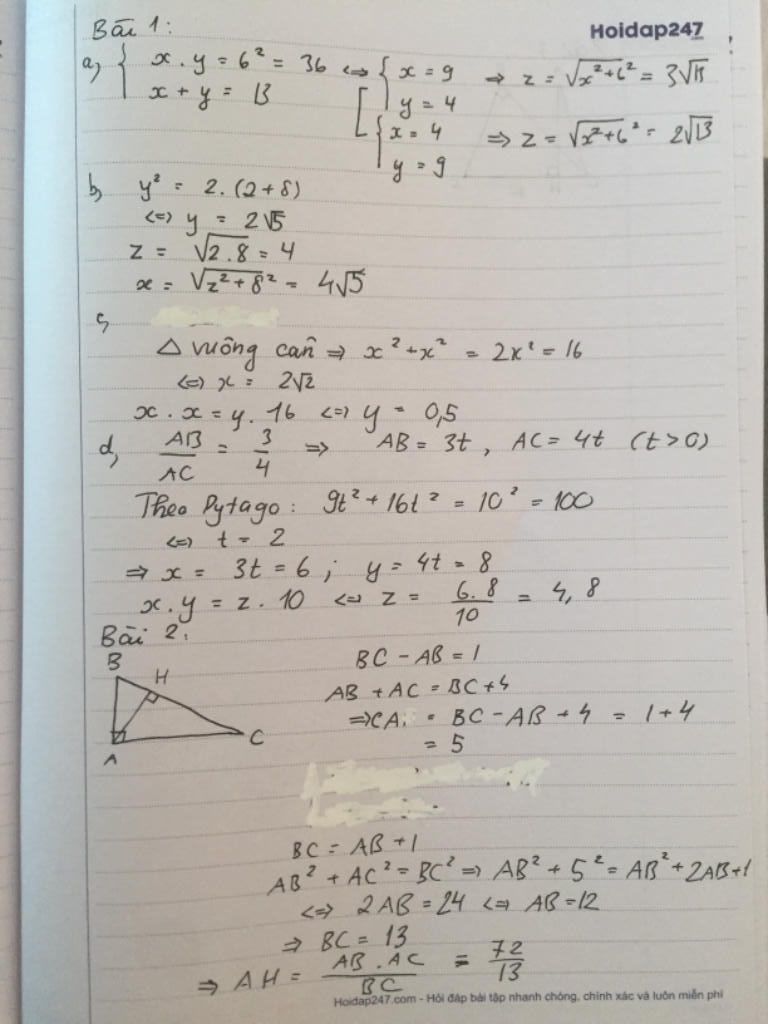 Bài 1:
Hoidap247
a, { x . y = 6² = 36 <=> [ { x = 9 => z = √x²+6² = 3√13
x + y = 13 y = 4
{ x = 4 => z = √x²+6² = 2√13
y = 9
b, y² = 2. (2+8)
<=> y = 2√5
z = √2.8 = 4
x = √z²+8² = 4√5
c,
△ vuông cân => x² + x² = 2x² = 16
<=> x = 2√2
x . x = y . 16 <=> y = 0,5
d, AB/AC = 3/4 => AB = 3t , AC = 4t (t > 0)
Theo Pytago : 9t² + 16t² = 10² = 100
<=> t = 2
=> x = 3t = 6 ; y = 4t = 8
x . y = z . 10 <=> z = 6.8/10 = 4,8
Bài 2:
B
H
C
A
BC - AB = 1
AB + AC = BC + 4
=> CA = BC - AB + 4 = 1 + 4
= 5
BC = AB + 1
AB² + AC² = BC² => AB² + 5² = AB² + 2AB + 1
<=> 2AB = 24 <=> AB = 12
=> BC = 13
=> AH = AB . AC/BC = 72/13
Hoidap247.com - Hỏi đáp bài tập nhanh chóng, chính xác và luôn miễn phí